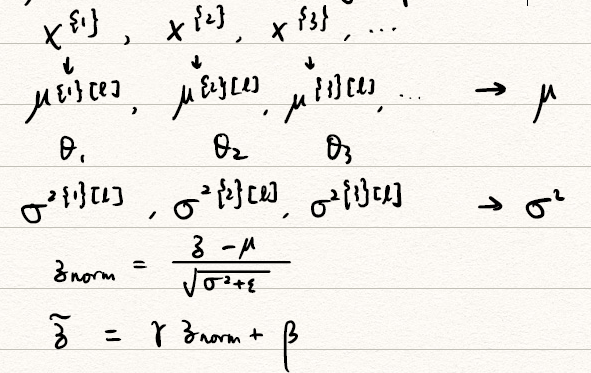 X^{1}, X^{2}, X^{3}, ...
↓ ↓ ↓
μ^{1}[l], μ^{2}[l], μ^{3}[l], ... → μ
θ₁ θ₂ θ₃
σ²^{1}[l], σ²^{2}[l], σ²^{3}[l] → σ²
z_norm = (z - μ) / √(σ²+ε)
z̃ = γ z_norm + β